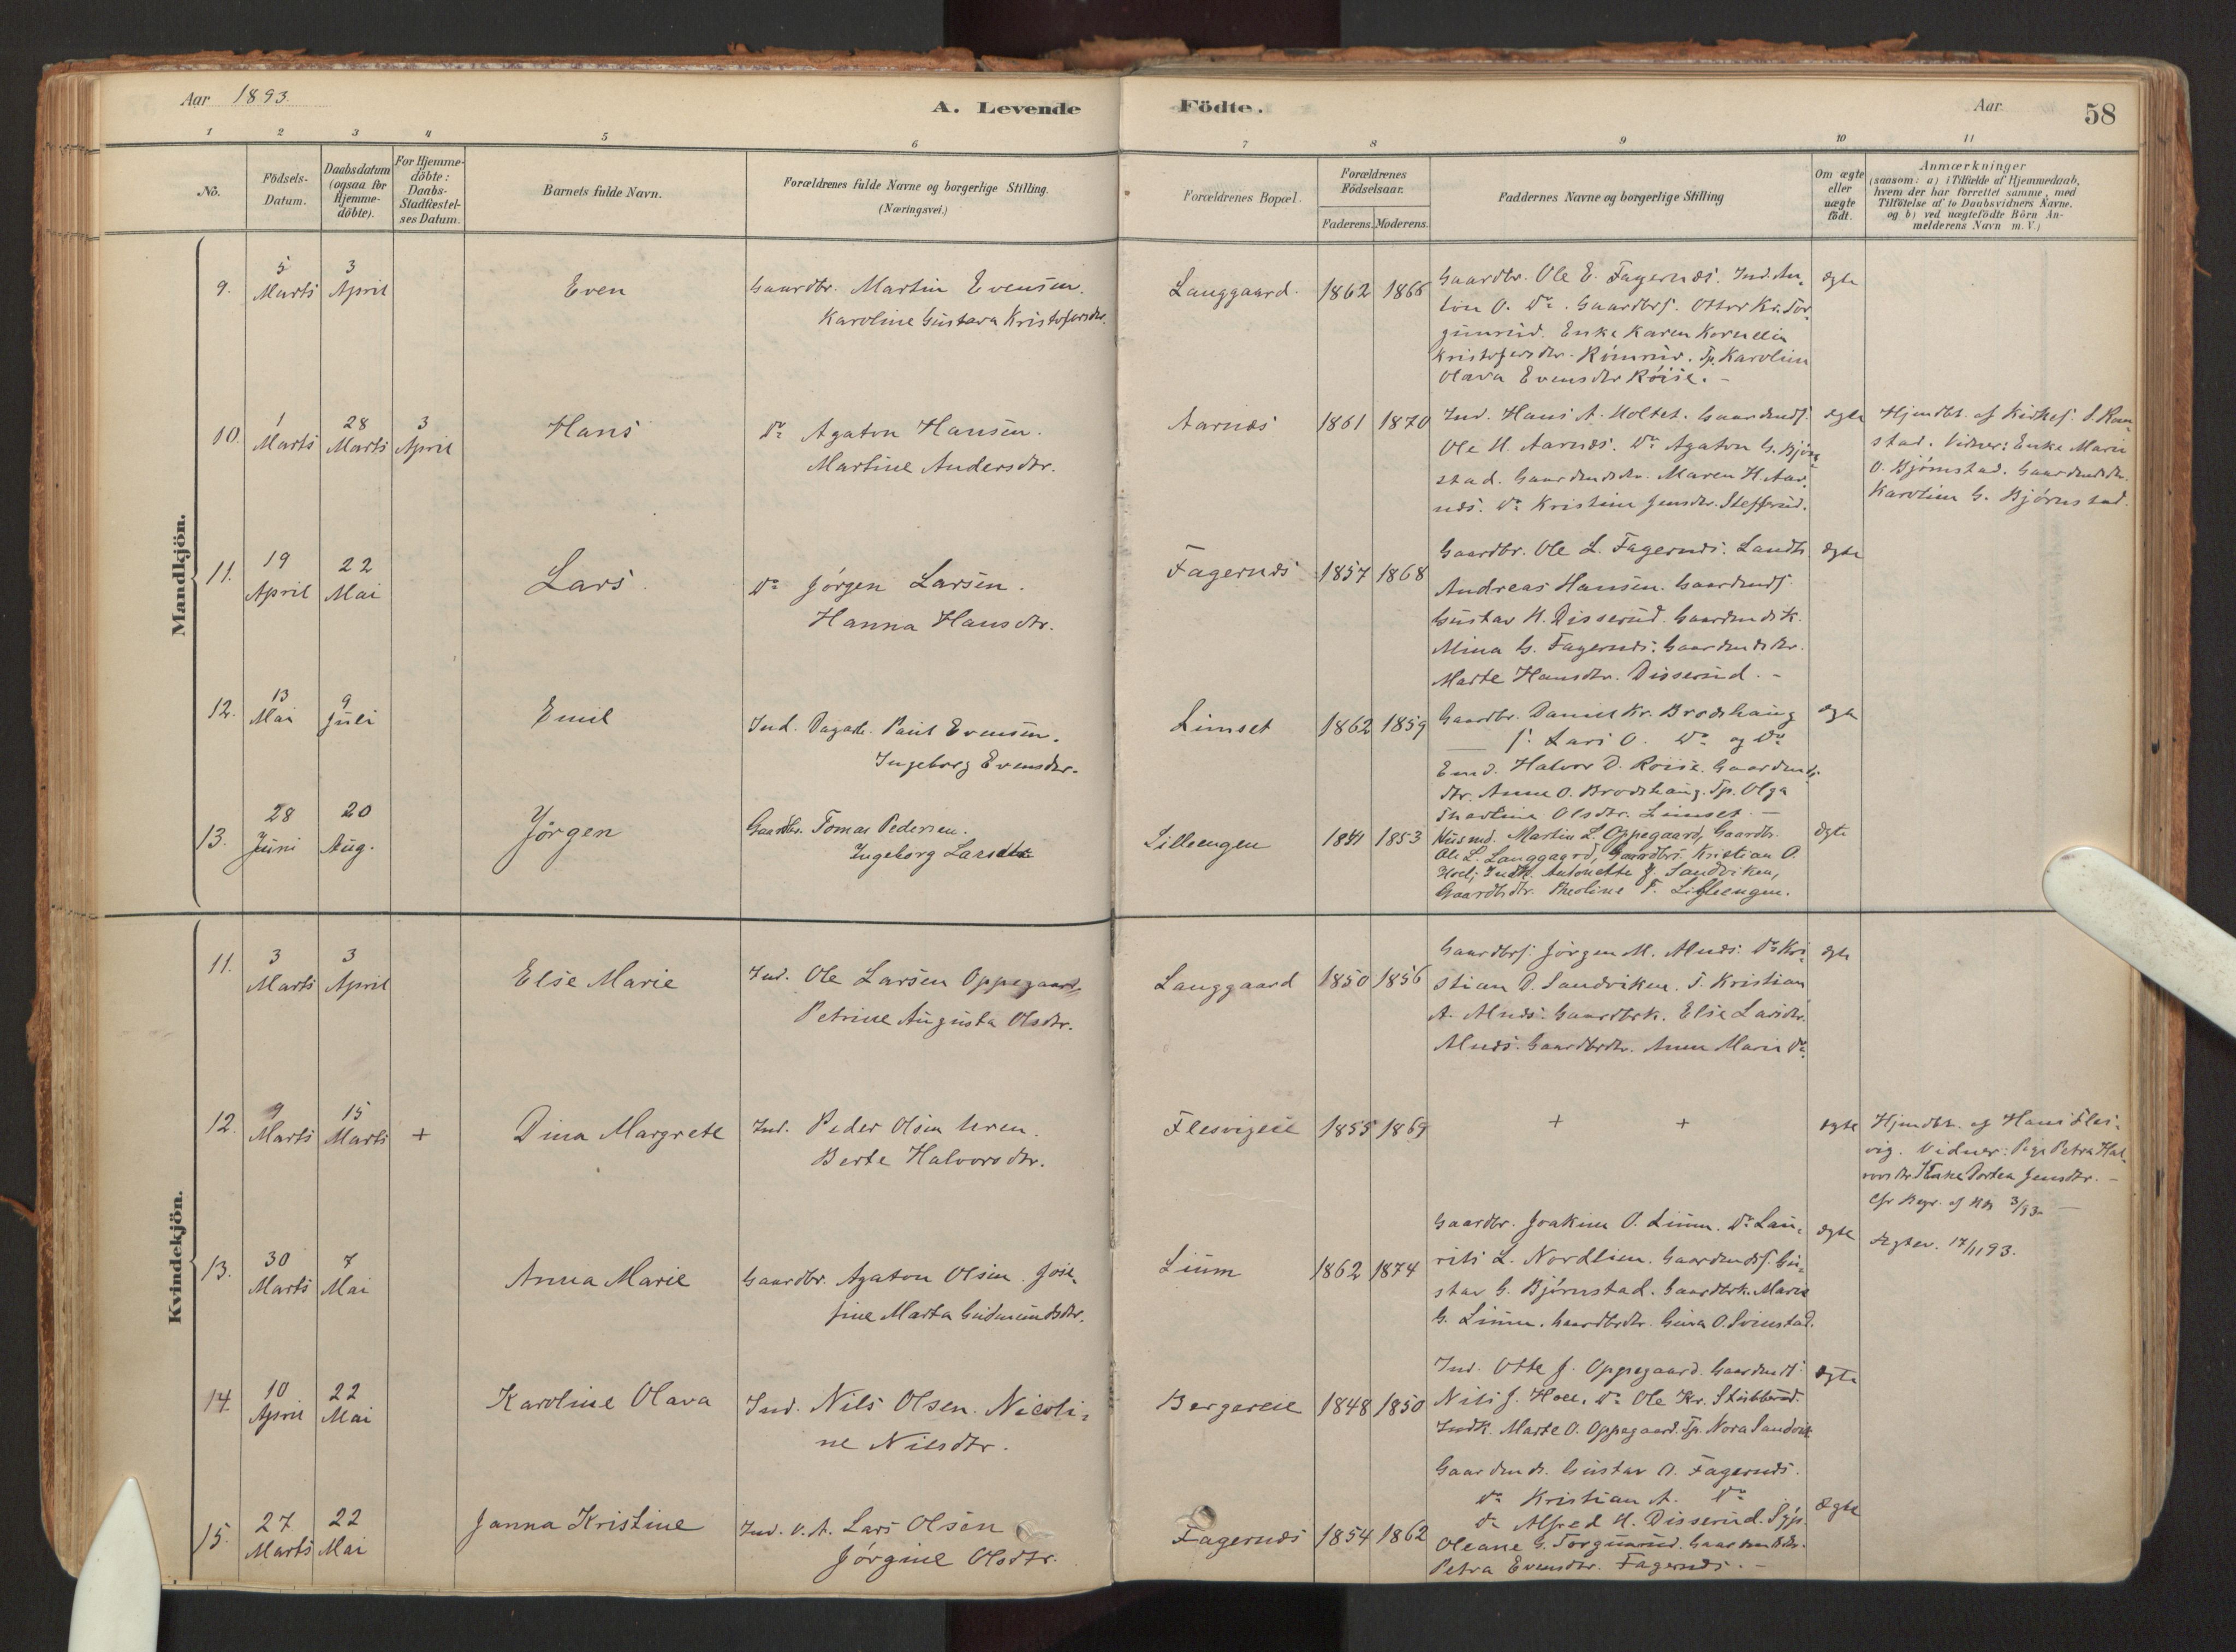 Aar 1893.
A. Levende Födte.
Aar
58
1 2 3 4 5 6 7 8 9 10 11
No.
Födsels-Datum.
Daabsdatum (ogsaa for Hjemme-döbte).
For Hjemme-döbte: Daabs-Stadfæstel-ses Datum.
Barnets fulde Navn.
Forældrenes fulde Navne og borgerlige Stilling. (Næringsvei.)
Forældrenes Bopæl.
Forældrenes Födselsaar.
Faderens. Moderens.
Faddernes Navne og borgerlige Stilling
Om ægte eller uægte födt.
Anmærkninger
(saasom: a) i Tilfælde af Hjemmedaab,
hvem der har forrettet samme, med
Tilföielse af to Daabsvidners Navne.
og b) ved uægtefödte Börn An-
melderens Navn m. V.)
Mandkjön.
9. 5 Marts 3 April Even
Gaardbr. Martin Evensen.
Karoline Gustava Kristofersdtr.
Langgaard. 1862 1866
Gaardbr. Ole E. Fagernæs. Ind. An-
ton O. Do. Gaardbrs. Ottor Kr. Tor-
gunrud. Enke Karen Kornelia
Kristofersdtr. Rómrud. Tp. Karoline
Olava Evensdtr Róise. -
ægte
10. 1 Marts 28 Marts 3 April Hans
Do Agaton Hansen.
Martine Andersdtr.
Aarnæs 1861 1870
Ind. Hans A. Holtet. Gaardmds.
Ole H. Aarnæs. Do Agaton G. Bjórn-
stad. Gaardmdsdtr. Maren H. Aar-
næs. Do Kristine Jensdtr. Stefferud.
ægte
Hjmdbt. af Kirkes. S. Ram-
stad. Vidner: Enke Marie
O. Bjórnstad. Gaardmdsdtr.
Karoline G. Bjórnstad.
11. 19 April 22 Mai Lars.
Do Jórgen Larsen.
Hanna Hansdtr.
Fagernæs 1857 1868
Gaardbr. Ole L. Fagernæs. Landh.
Andreas Hansen. Gaardmds.
Gustav H. Disserud. Gaardmdsk.
Mina G. Fagernæs. Gaardmdsdtr.
Marte Hansdtr. Disserud. -
ægte
12. 13 Mai 9 Juli Emil
Ind. Dagarb. Paul Evensen.
Ingeborg Evensdtr.
Limset 1862 1859
Gaardbr. Daniel Kr. Brodshaug
s. Lars O. Do og Do
Emd. Halvor D. Roise. Gaardmds-
dtr. Anne O. Brodshaug. Tp. Olga
Theoline Olsdtr. Limset. -
ægte
13. 28 Juni 20 Aug. Jørgen
Gaardbr. Tomas Pedersen.
Ingeborg Larsdtr
Lilleengen 1853
Husmd. Martin L. Oppegaard, Gaardb.
Ole L. Langgaard, Gaardbrs. Kristian O.
Hoel; Indk. Antonette J. Sandviken,
Gaardbdtr. Theoline T. Lilleengen.
ægte
Kvindekjön.
11. 3 Marts 3 April Else Marie
Ind. Ole Larsen Oppegaard,
Petrine Augusta Olsdtr.
Langgaard 1850 1856
Gaardbrs. Jörgen M. Alnæs. Do Kri-
stian O. Sandviken. S. Kristian
A. Alnæs. Gaardbrk. Elie Larsdtr.
Alnæs. Gaardbrdtr. Anne Marie Do
ægte
12. 9 Marts 15 Marts + Dina Margrete
Ind. Peder Olsen
Berte Halvorsdtr.
Flesvigeie 1855 1869
+ +
ægte
Hjmdbt. af Hans Fles-
vig. Vidner: Pige Petra Hal-
vorsdtr. Enke Dortea Jensdtr. -
13. 30 Marts 7 Mai Anna Marie
Gaardbr. Agaton Olsen. Jose-
fine Marta Gudmundsdtr.
Lium 1862 1874
Gaardbr. Joakim O. Lium. Do Lau-
rits L. Nordlien. Gaardmds. Gu-
stav G. Bjórnstad. Gaardbrk. Marie
G. Lium. Gaardbrdtr. Gina O. Svinstad.
ægte
14. 10 April 22 Mai Karoline Olava
Ind. Nils Olsen. Nicoli-
ne Nilsdtr.
Bergereie 1848 1850
Ind. Otte J. Oppegaard. Gaardmds.
Nils J. Hoel. Do Ole Kr. Stubberud.
Indk. Marte O. Oppegaard. Tp. Nora Sandvik
ægte
15. 27 Marts 22 Mai Janna Kristine
Ind. Lars Olsen
Jórgine Olsdtr.
Fagernæs 1854 1862
Gaardmds. Gustav A. Fagernæs.
Do Kristian A. Do
Do Alfred H. Disserud. Syp.
Oleane G. Torgunrud. Gaardmdsdtr.
Petra Evensdtr. Fagernæs. -
ægte